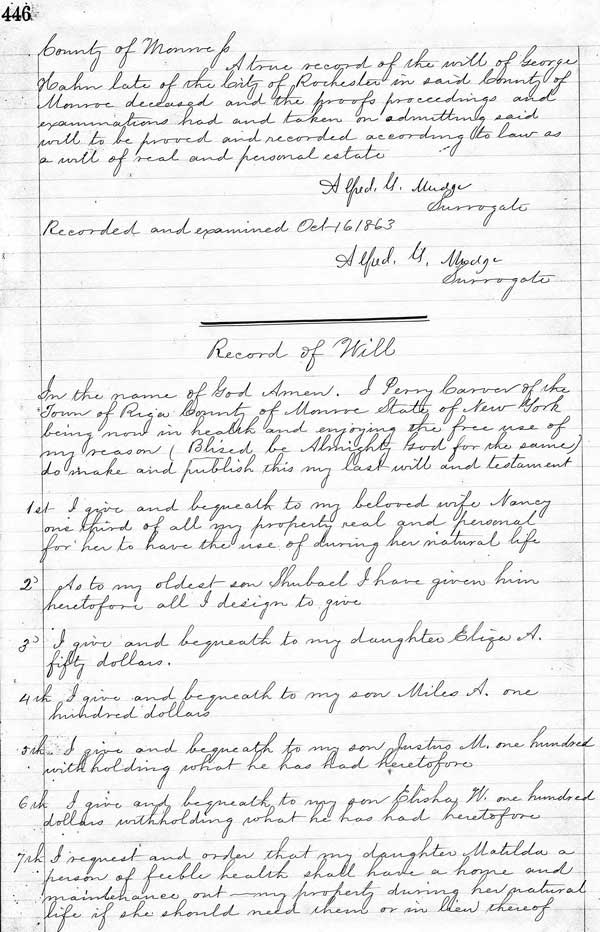 446
County of Monroe ss
A true record of the will of George
Hahn late of the City of Rochester in said County of
Monroe deceased and the proofs proceedings and
examinations had and taken on admitting said
will to be proved and recorded according to law as
a will of real and personal estate
Alfred. G. Mudge
Surrogate
Recorded and examined Oct 16 1863
Alfred. G. Mudge
Surrogate
Record of Will
In the name of God Amen. I Perry Carver of the
Town of Riga County of Monroe State of New York
being now in health and enjoying the free use of
my reason (Blised be Almighty God for the same)
do make and publish this my last will and testament
1st I give and bequeath to my beloved wife Nancy
one third of all my property real and personal
for her to have the use of during her natural life
2d As to my oldest son Shubael I have given him
heretofore all I design to give
3d I give and bequeath to my daughter Eliza A.
fifty dollars.
4th I give and bequeath to my son Miles A. one
hundred dollars
5th I give and bequeath to my son Justus M. one hundred
withholding what he has had heretofore
6th I give and bequeath to my son Elisha W. one hundred
dollars withholding what he has had heretofore
7th I request and order that my daughter Matilda a
person of feeble health shall have a home and
maintenance out my property during her natural
life if she should need them or in lieu thereof